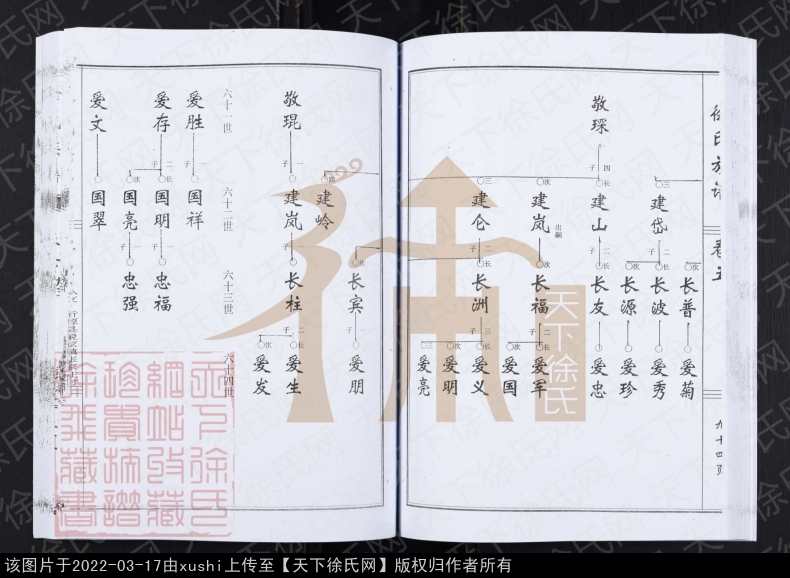 徐氏族谱
卷五
九十四页
敬琛
四子
长
建山
次
建岚
出嗣
三
建仑
四
建岭
三
建岱
二子
长
长波
次
长源
次
长普
一子
长友
二子
长
长福
一子
长
长洲
次
长宾
爱菊
爱秀
爱珍
爱忠
二子
长
爱军
次
爱国
三子
长
爱义
次
爱明
三
爱亮
爱朋
六十一世
六十二世
六十三世
六十四世
敬琨
一子
建岚
一子
长柱
二子
长
爱生
次
爱发
爱胜
一子
国祥
爱存
二子
长
国明
次
国亮
一子
忠福
一子
忠强
爱文
国翠
天下徐氏
天下徐氏网
该图片于2022-03-17由xushi上传至【天下徐氏网】版权归作者所有